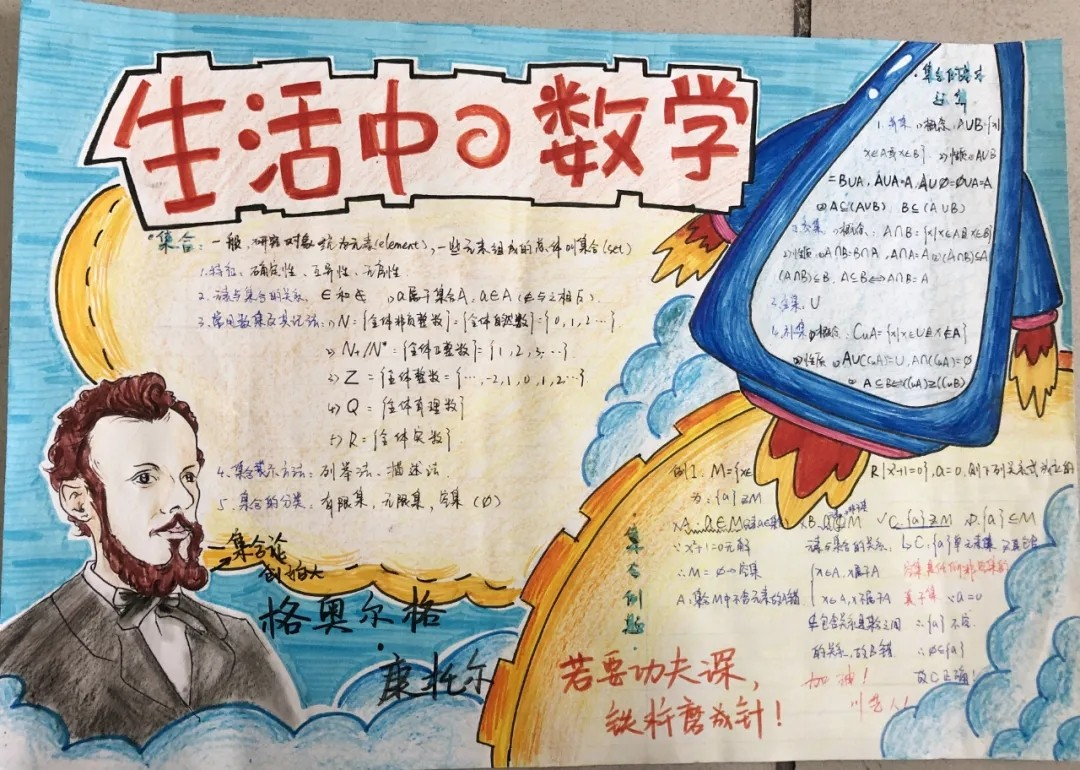 生活中の数学
集合：一般，研究对象统称为元素(element)，一些元素组成的总体叫集合(set)
1.特征：确定性、互异性、无序性
2.元素与集合的关系，∈和∉ 1)a属于集合A，a∈A(∉与之相反)
3.常见数集及其记法：1)N={全体非负整数}={全体自然数}={0,1,2…}
2)N+/N*={全体正整数}={1,2,3…}
3)Z={全体整数={…,-2,1,0,1,2…}
4)Q={全体有理数}
5)R={全体实数}
4.集合表示方法：列举法、描述法
5.集合的分类：有限集，无限集，空集(∅)
—集合论
创始人
格奥尔格
·
康托尔
·集合的基本
1.并集 1)概念：A∪B={x|
x∈A或x∈B} 2)性质 A∪B
=B∪A，A∪A=A，A∪∅=∅∪A=A
A⊆(A∪B) B⊆(A∪B)
2.交集 1)概念：A∩B={x|x∈A且x∈B}
2)性质 A∩B=B∩A，A∩A=A (A∩B)⊆A
(A∩B)⊆B，A⊆B⇔A∩B=A
3.全集，U
4.补集 概念：CuA={x|x∈U且x∉A}
2)性质 A∪(CuA)=U，A∩(CuA)=∅
A⊆B⇔(CuA)⊇(CuB)
集合例题
例1：M={x∈ R|x²+1=0}，a=0，则下列关系式成立的
为：{a}⊇M
A：a∈M B. M √C.{a}⊋M D.{a}⊆M
∵x²+1=0无解
∴M=∅→空集
A：集合M中不含元素故A错
元素与集合的关系
x∈A，x属于A
x∉A，x不属于A
包含关系是集合之间
的关系，故B错
真子集 ∵a=0
∴{a}不空
∴∅⊊{a}
故C正确！
若要功夫深，
铁杵磨成针！
加油！